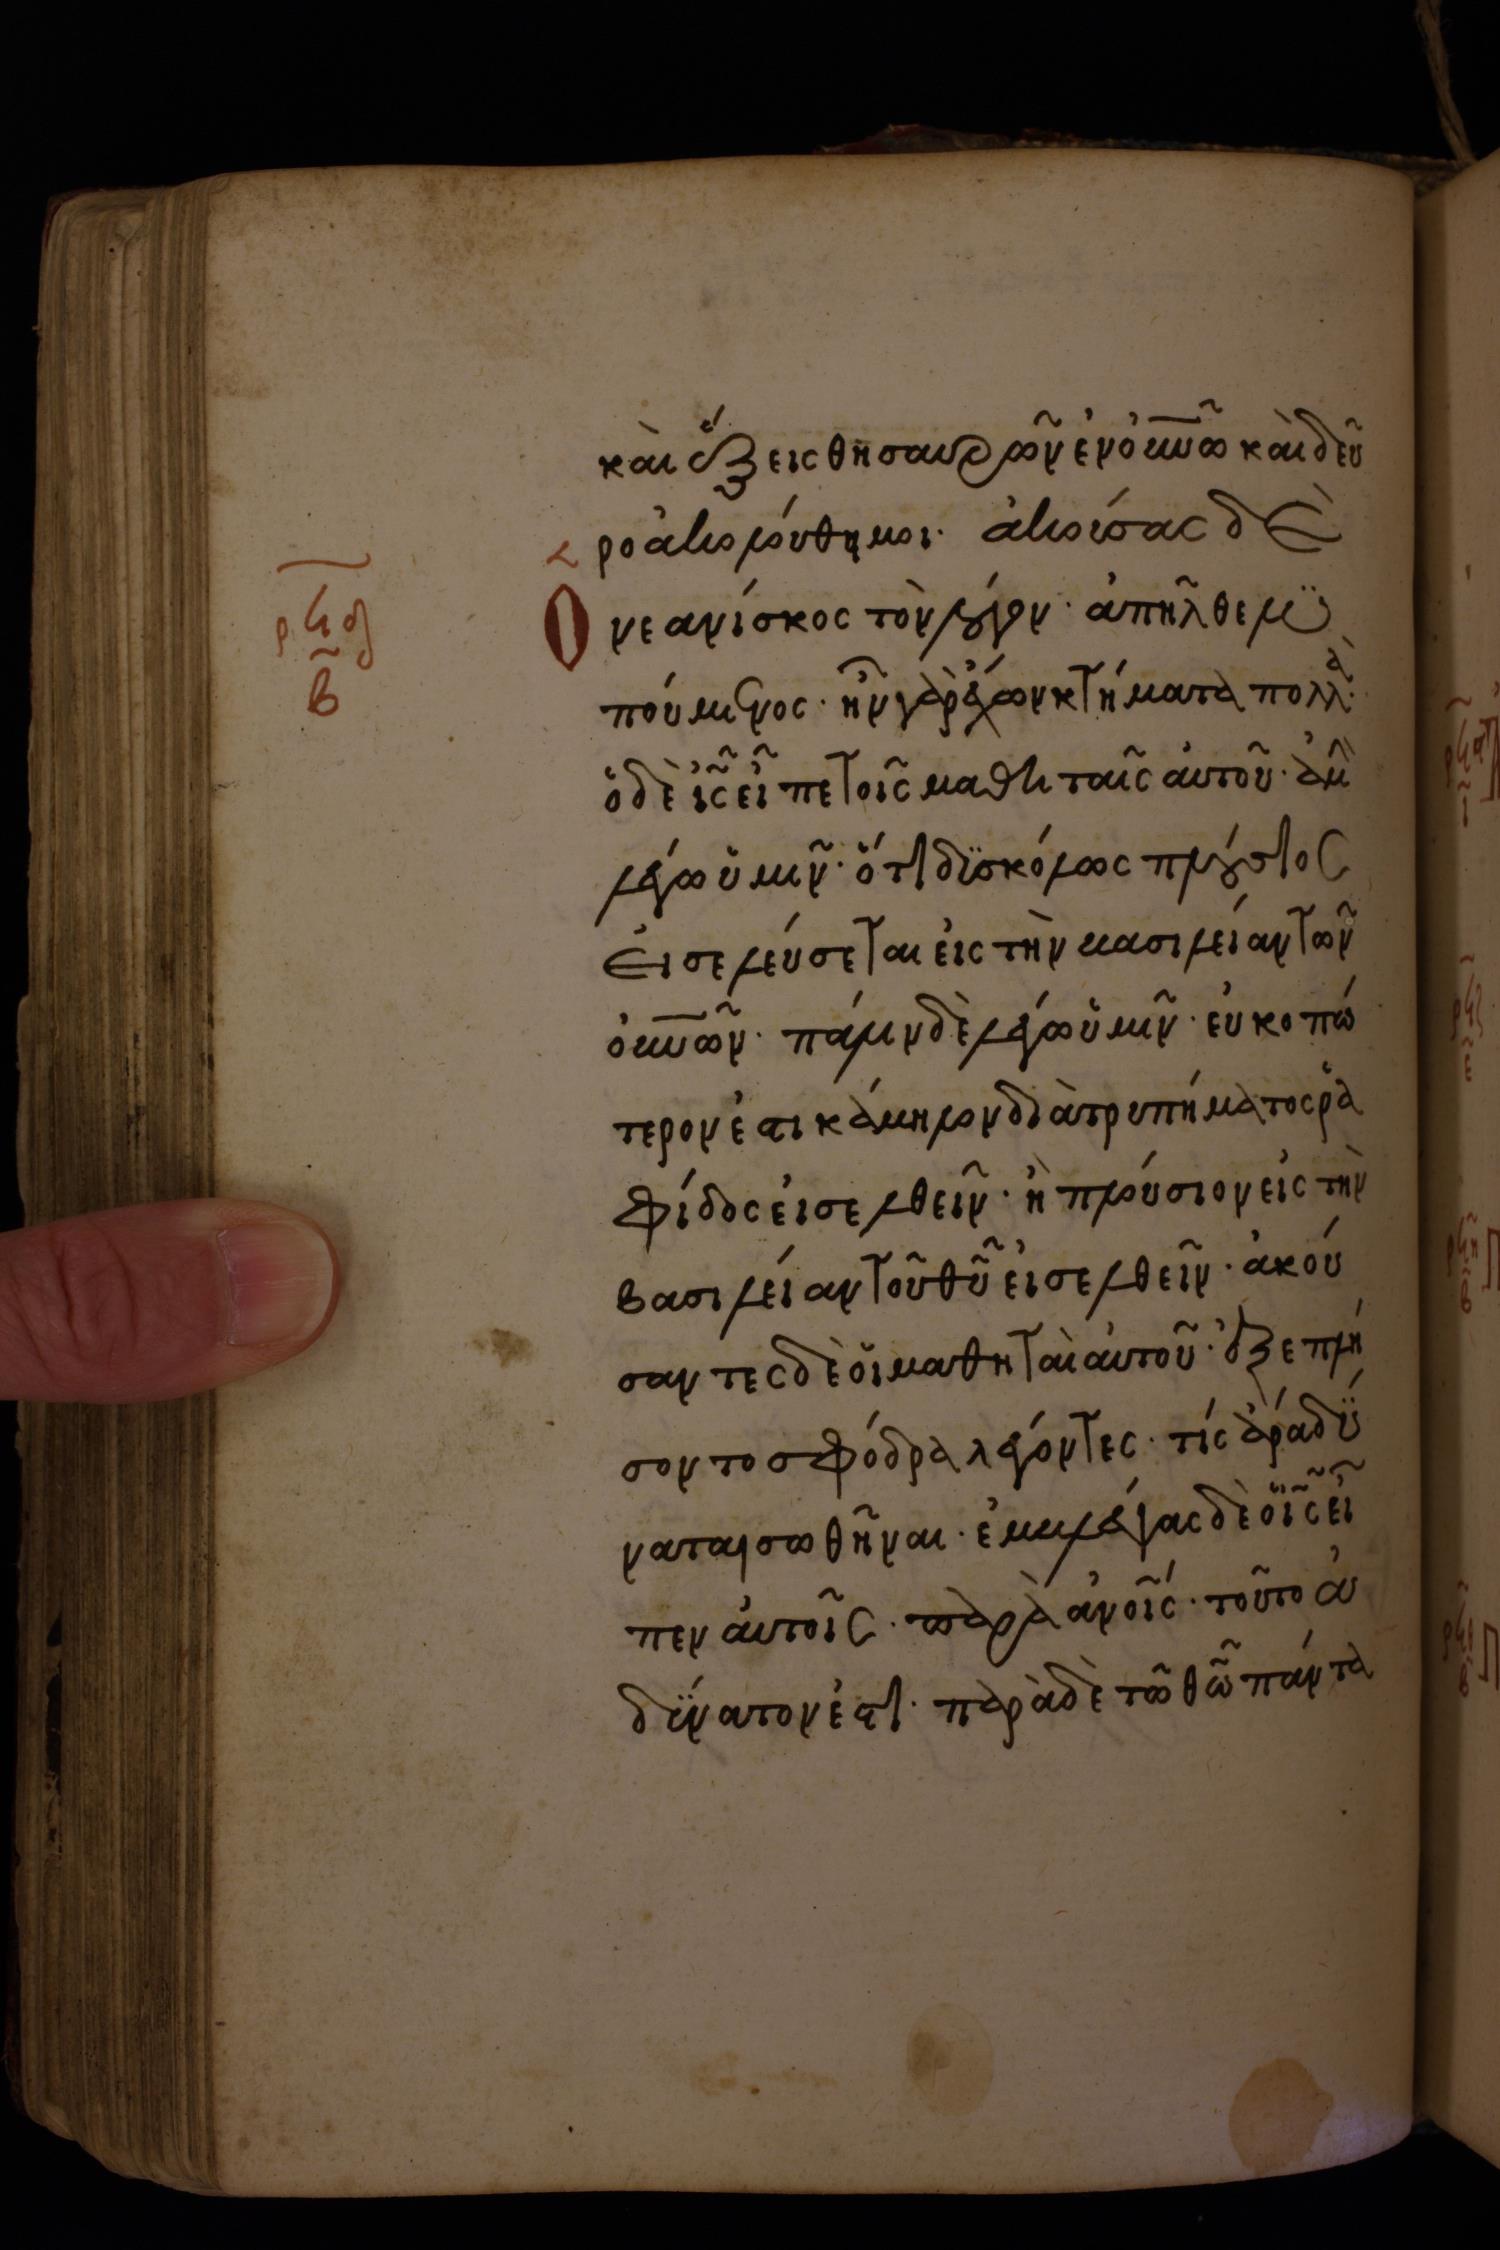 καὶ ἕξεις θησαυρῶν ἐν ὀυνῶ καὶ δεῦ
ρο ἀκολούθη μοι· ἀκούσας δὲ
Ο νεανίσκος τὸν λόγον· ἀπῆλθε λϋ
πούμενος· ἦν γὰρ ἔχων κτήματα πολλὰ·
ὁ δὲ ἰς εἶπε τοῖς μαθηταῖς αὐτοῦ· ἀμὴ
λέγω ὑμῖν· ὅτι δϋσκόλως πλούσιος
εἰσελεύσεται εἰς τὴν βασιλείαν τῶν
ὀυνῶν· πάλιν δὲ λέγω ὑμῖν· εὐκοπώ
τερον ἐστι κάμηλον διὰ τρυπήματος ῥα
φίδος εἰσελθεῖν· ἢ πλούσιον εἰς τὴν
βασιλείαν τοῦ θῦ εἰσελθεῖν· ἀκού
σαντες δὲ ὁι μαθηταὶ αὐτοῦ· ἐξεπλή
σοντο σφόδρα λέγοντες· τίς ἄρα δύ
ναται σωθῆναι· ἐμβλέψας δὲ ὁ ἰς εἶ
πεν αὐτοῖς· παρὰ ἀνοῖς· τοῦτο ἀ
δϋνατον ἐστι· παρὰ δὲ τῶ θῶ πάντα
ρϟδ
β